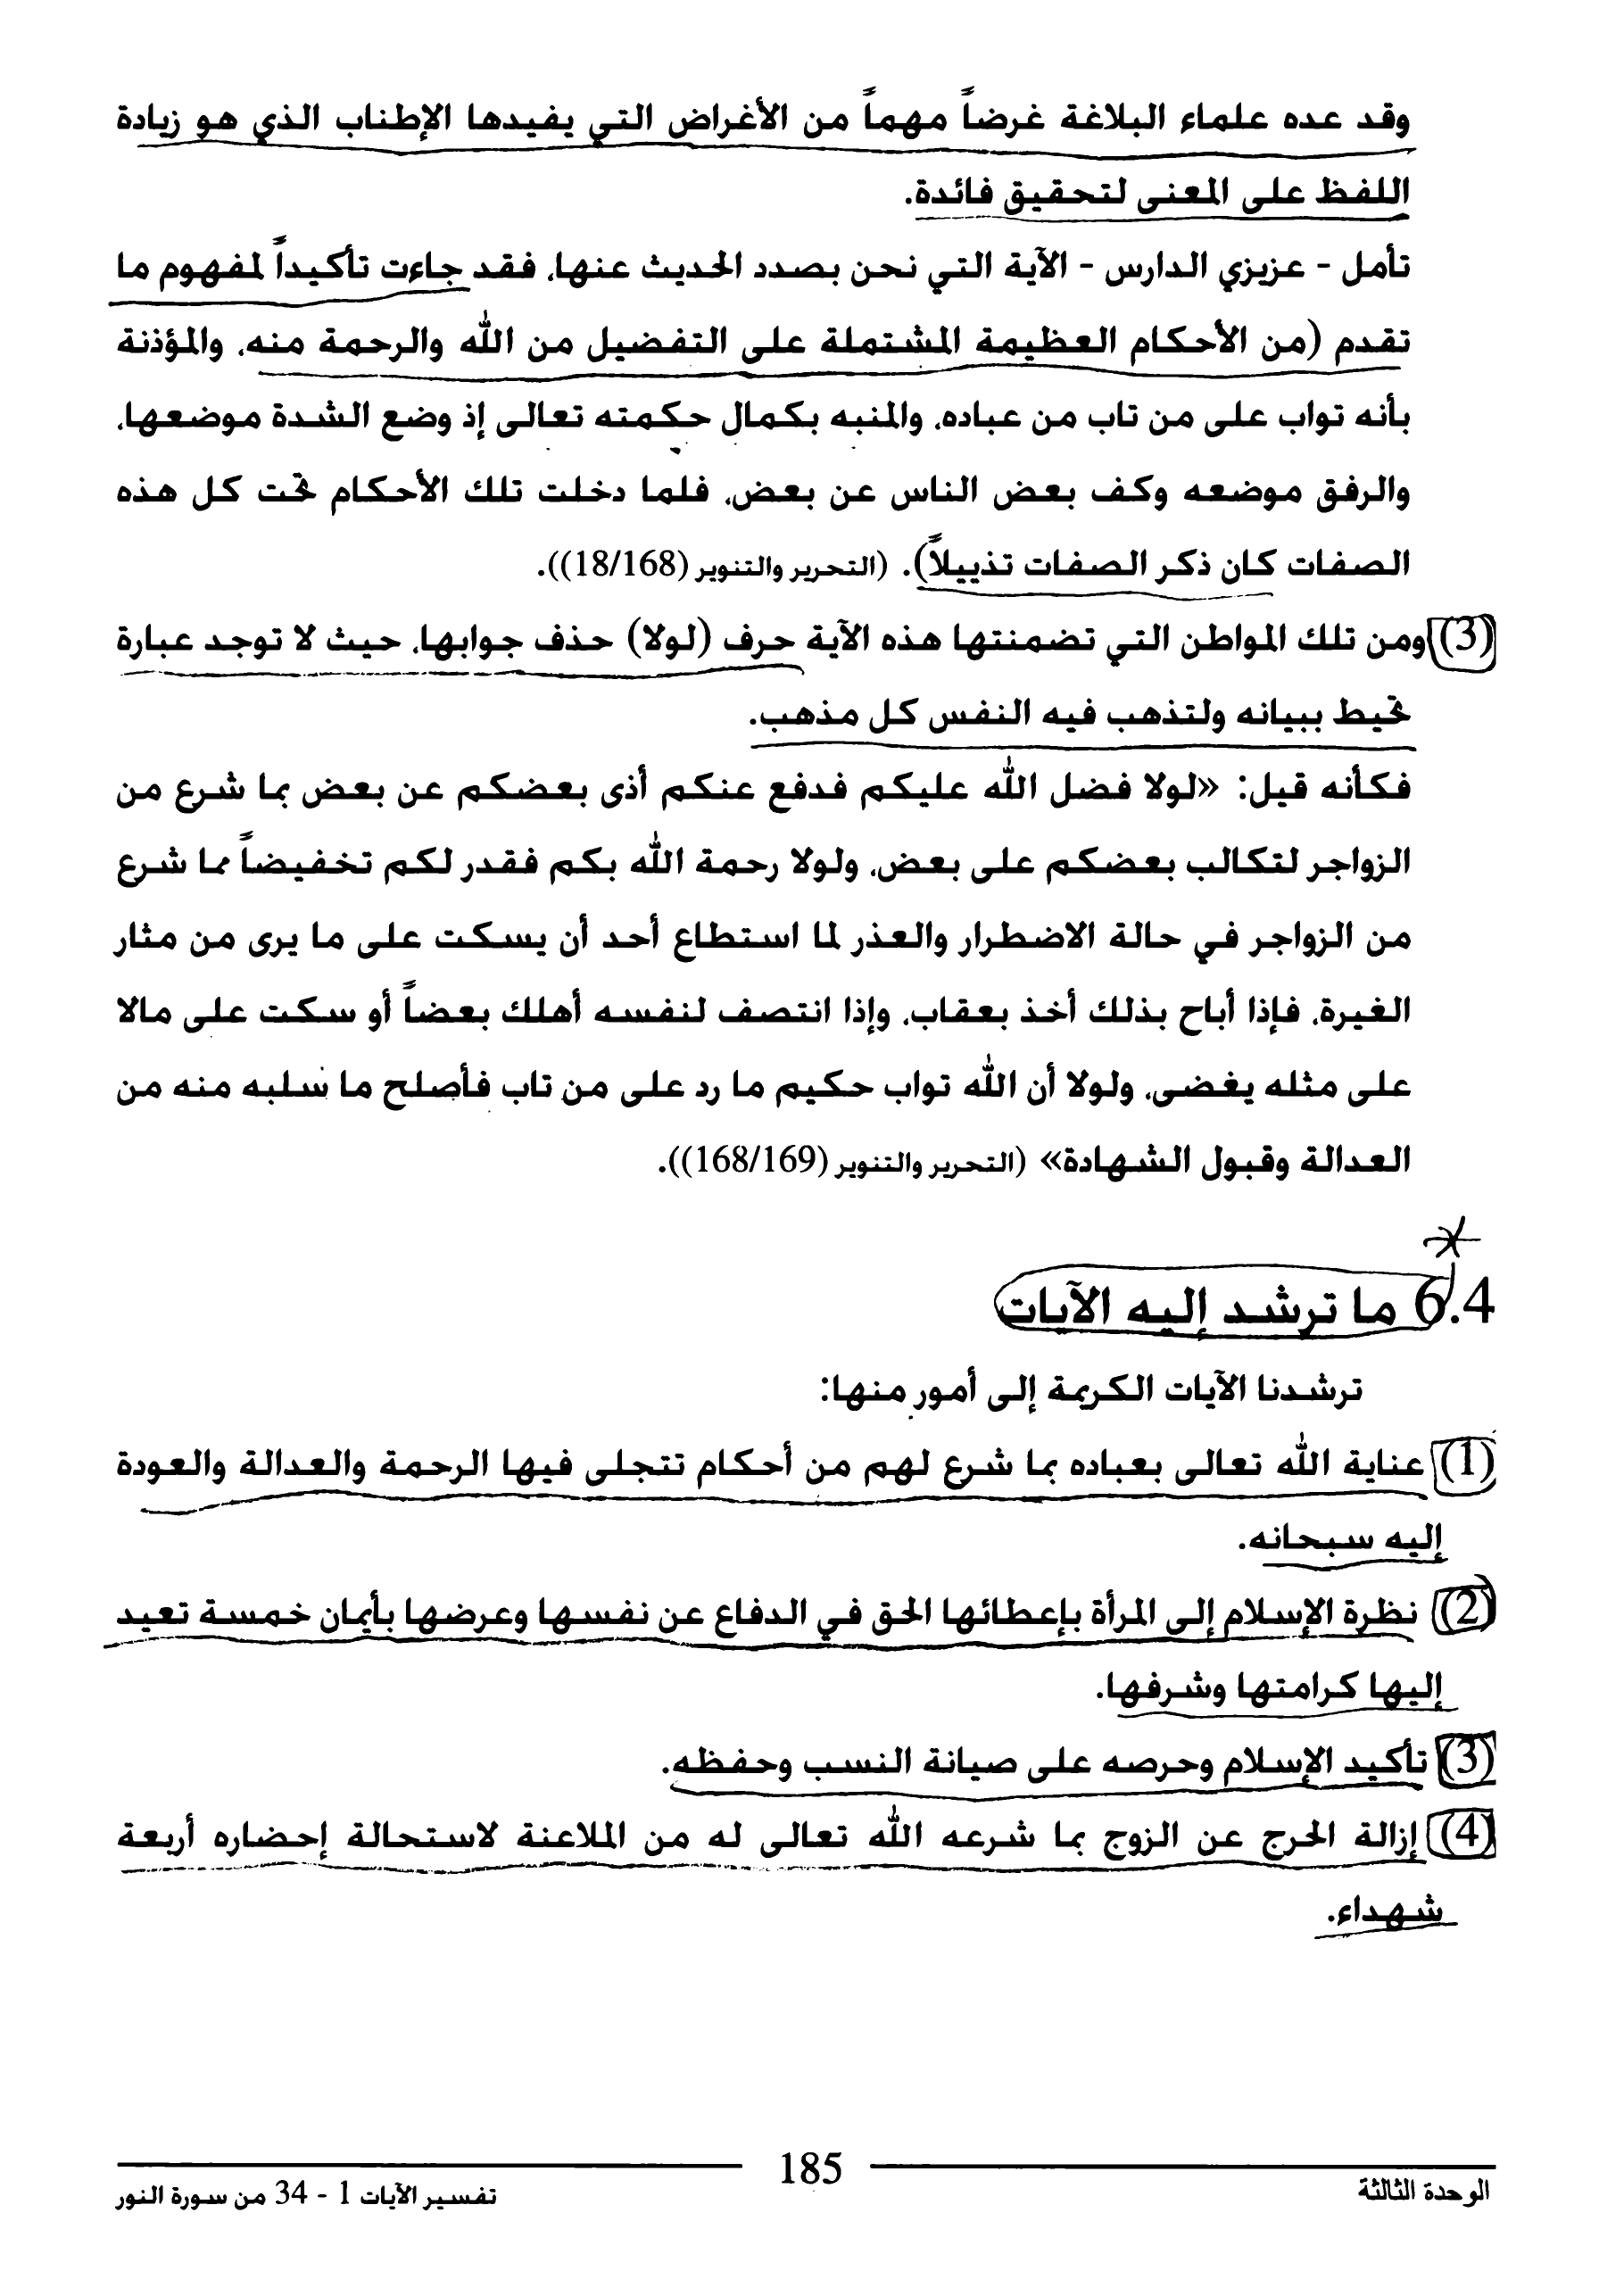 وقد عده علماء البلاغة غرضاً مهماً من الأغراض التي يفيدها الإطناب الذي هو زيادة
اللفظ على المعنى لتحقيق فائدة.
تأمل - عزيزي الدارس - الآية التي نحن بصدد الحديث عنها، فقد جاءت تأكيداً لمفهوم ما
تقدم (من الأحكام العظيمة المشتملة على التفضيل من الله والرحمة منه، والمؤذنة
بأنه تواب على من تاب من عباده، والمنبه بكمال حكمته تعالى إذ وضع الشدة موضعها،
والرفق موضعه وكف بعض الناس عن بعض، فلما دخلت تلك الأحكام تحت كل هذه
الصفات كان ذكر الصفات تذييلاً). (التحرير والتنوير (18/168)).
(3) ومن تلك المواطن التي تضمنتها هذه الآية حرف (لولا) حذف جوابها، حيث لا توجد عبارة
تحيط ببيانه ولتذهب فيه النفس كل مذهب.
فكأنه قيل: «لولا فضل الله عليكم فدفع عنكم أذى بعضكم عن بعض بما شرع من
الزواجر لتكالب بعضكم على بعض، ولولا رحمة الله بكم فقدر لكم تخفيضاً مما شرع
من الزواجر في حالة الاضطرار والعذر لما استطاع أحد أن يسكت على ما يرى من مثار
الغيرة، فإذا أباح بذلك أخذ بعقاب، وإذا انتصف لنفسه أهلك بعضاً أو سكت على مالا
على مثله يغضى، ولولا أن الله تواب حكيم ما رد على من تاب فأصلح ما سلبه منه من
العدالة وقبول الشهادة» (التحرير والتنوير (168/169)).
6.4 ما ترشد إليه الآيات
ترشدنا الآيات الكريمة إلى أمور منها:
(1) عناية الله تعالى بعباده بما شرع لهم من أحكام تتجلى فيها الرحمة والعدالة والعودة
إليه سبحانه.
(2) نظرة الإسلام إلى المرأة بإعطائها الحق في الدفاع عن نفسها وعرضها بأيمان خمسة تعيد
إليها كرامتها وشرفها.
(3) تأكيد الإسلام وحرصه على صيانة النسب وحفظه.
(4) إزالة الحرج عن الزوج بما شرعه الله تعالى له من الملاعنة لاستحالة إحضاره أربعة
شهداء.
185
الوحدة الثالثة
تفسير الآيات 1 - 34 من سورة النور